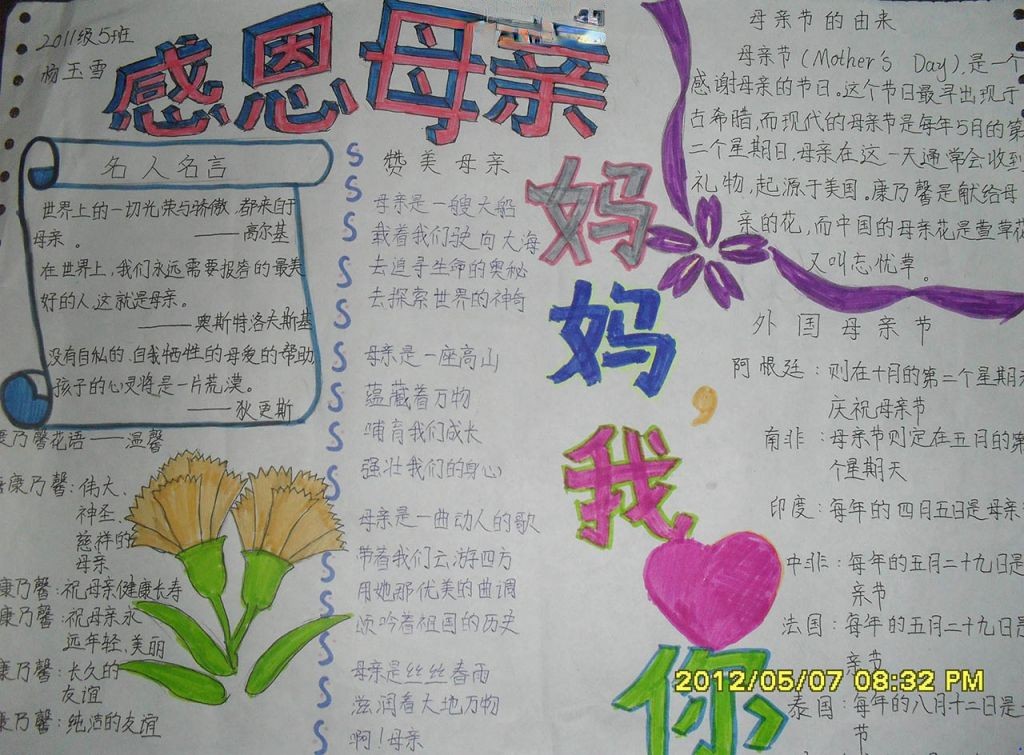 2011级5班
杨玉雪
感恩母亲
名人名言
世界上的一切光荣与骄傲,都来自于
母亲。——高尔基
在世界上,我们永远需要报答的最美
好的人这就是母亲。
——奥斯特洛夫斯基
没有自私的、自我牺牲的母爱的帮助
孩子的心灵将是一片荒漠。
——狄更斯
康乃馨花语——温馨
康乃馨:伟大、
神圣、
慈祥的
母亲
康乃馨:祝母亲健康长寿
康乃馨:祝母亲永
远年轻、美丽
康乃馨:长久的
友谊
康乃馨:纯洁的友谊
赞美母亲
母亲是一艘大船
载着我们驶向大海
去追寻生命的奥秘
去探索世界的神奇
母亲是一座高山
蕴藏着万物
哺育我们成长
强壮我们的身心
母亲是一曲动人的歌
带着我们云游四方
用她那优美的曲调
颂吟着祖国的历史
母亲是丝丝春雨
滋润着大地万物
啊!母亲
妈
妈,
我
你
母亲节的由来
母亲节(Mother's Day),是一个
感谢母亲的节日。这个节日最早出现于
古希腊,而现代的母亲节是每年5月的第
二个星期日,母亲在这一天通常会收到
礼物,起源于美国。康乃馨是献给母
亲的花,而中国的母亲花是萱草花
又叫忘忧草。
外国母亲节
阿根廷:则在十月的第二个星期天
庆祝母亲节
南非:母亲节则定在五月的第
个星期天
印度:每年的四月五日是母亲
中非:每年的五月二十九日是
亲节
法国:每年的五月二十九日是
亲节
泰国:每年的八月十二日是
节
2012/05/07 08:32 PM